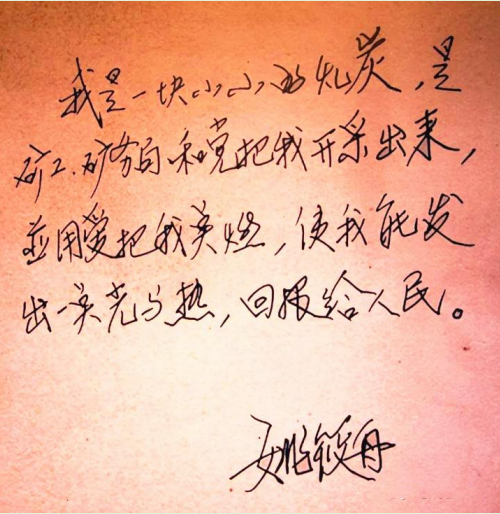 我是一块小小的煤炭,是
矿工、矿务局和党把我开采出来,
並用爱把我点燃,使我能发
出一点光与热,回报给人民。
姚筱丹